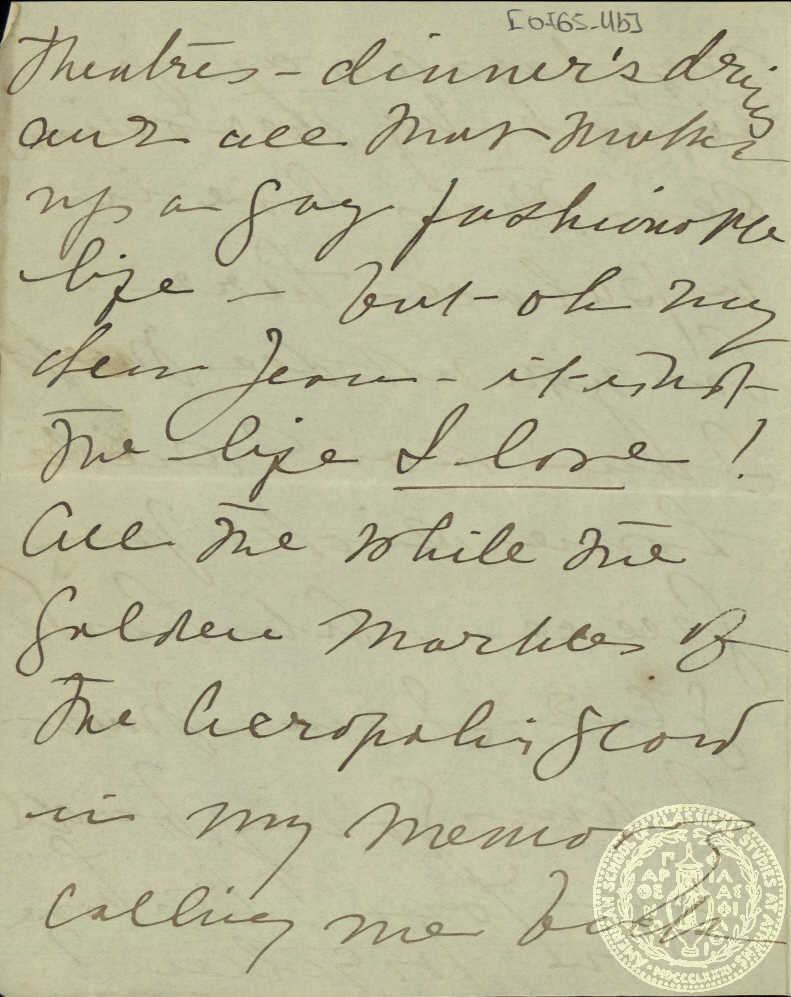 [0165-4b]
Theatres - dinner's drives
and all that makes
up a gay fashionable
life - but - oh my
dear Jean - it is not
the life I love !
All the while the
golden marbles of
the Acropolis glow
in my memory
calling me back
AMERICAN SCHOOL OF CLASSICAL STUDIES AT ATHENS
MDCCCLXXXI